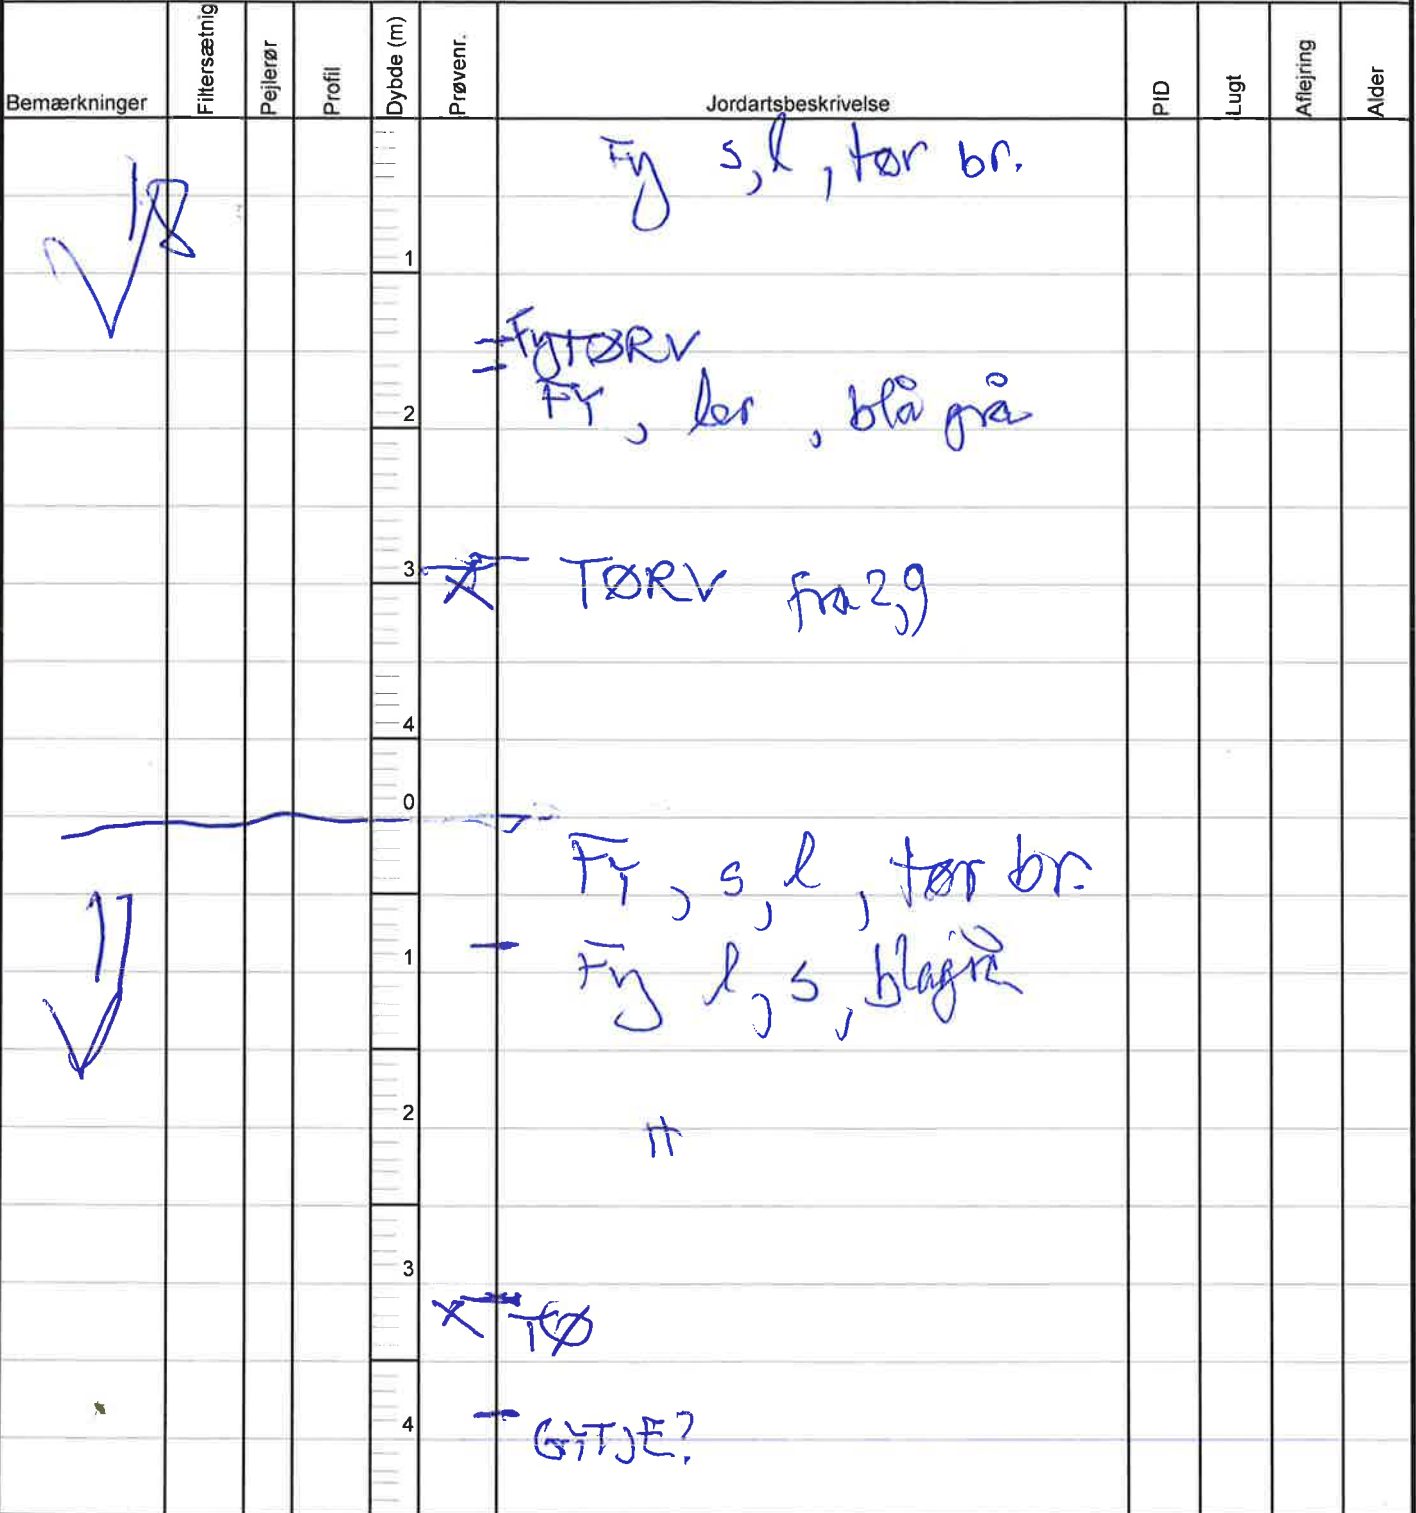 Bemærkninger Filtersætnig Pejlerør Profil Dybde (m) Prøvenr. Jordartsbeskrivelse PID Lugt Aflejring Alder
18
Fy s, l, tør br.
1
FyTØRV
2 FY, ler, blå grå
3 X TØRV fra 2,9
4
0
FY, s, l, tør br.
17
1 Fy l, s, blågrå
2
3
X TØ
4 GYTJE?